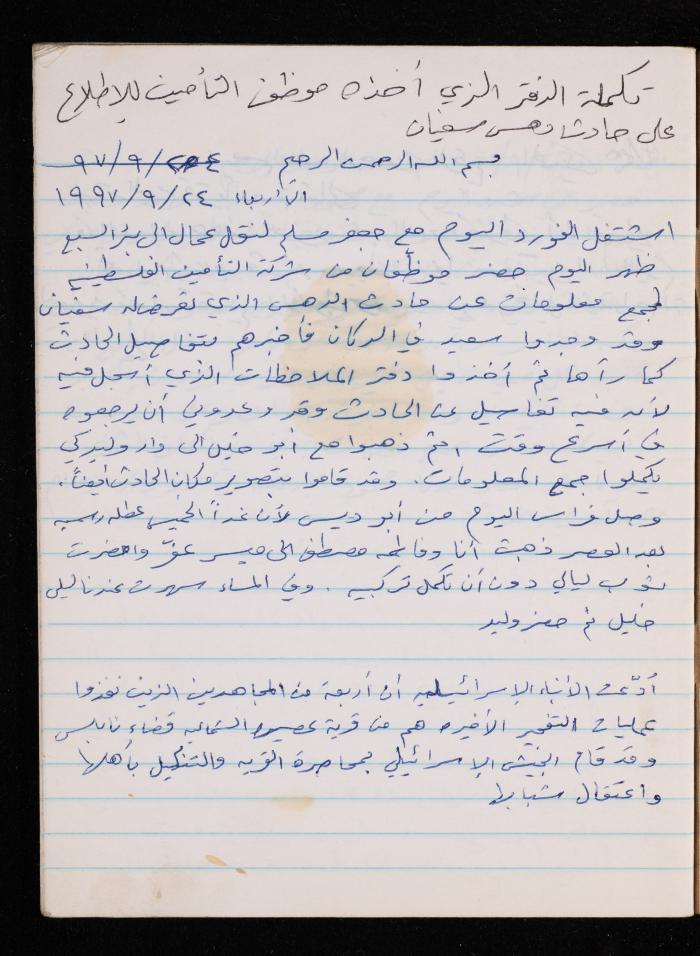 تكملة الدفتر الذي أخذه موظف التأمين للإطلاع
على حادث دهس سفيان
بسم الله الرحمن الرحيم ٩٧/٩/٢٤
الأربعاء ١٩٩٧/٩/٢٤
اشتغل الفورد اليوم مع جعفر مسلم لنقل عمال الى بئر السبع
ظهر اليوم حضر موظفان من شركة التأمين الفلسطينية
لجمع معلومات عن حادث الدهس الذي تعرض له سفيان
وقد وجدوا سعيد في الدكان فأخبرهم بتفاصيل الحادث
كما رأها ثم أخذوا دفتر الملاحظات الذي أسجل فيه
لأنه فيه تفاصيل عن الحادث وقد وعدوني أن يرجعوه
في أسرع وقت ثم ذهبوا مع أبو خليل الى دار وليد كي
يكملوا جمع المعلومات. وقد قاموا بتصوير مكان الحادث أيضاً.
وصل فراس اليوم من أبو ديس لأن غداً الخميس عطله رسميه
بعد العصر ذهبت أنا وفاطمه مصطفى الى ميسر واحضرت
ثوب ليالي دون أن تكمل تركيبه. وفي المساء سهرت عندنا ليلى
خليل ثم حضر وليد
أدّعت الأنباء الإسرائيليه أن أربعة من المجاهدين الذين نفذوا
عمليات التفجير الأخيره هم من قرية عصيره الشماليه قضاء نابلس
وقد قام الجيش الإسرائيلي بمحاصرة القريه والتنكيل بأهلها
واعتقال شبابها